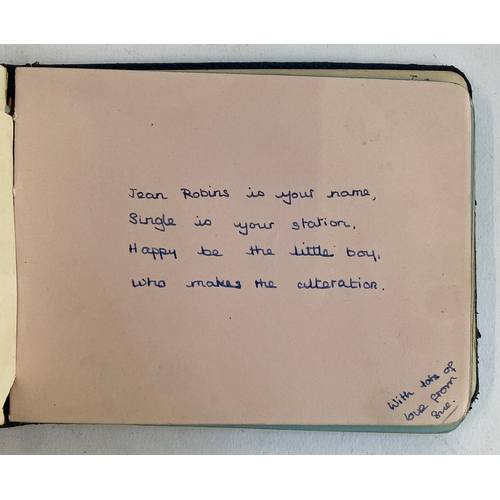 Jean Robins is your name,
Single is your station,
Happy be the little boy,
Who makes the alteration.
With lots of
love from
Sue.